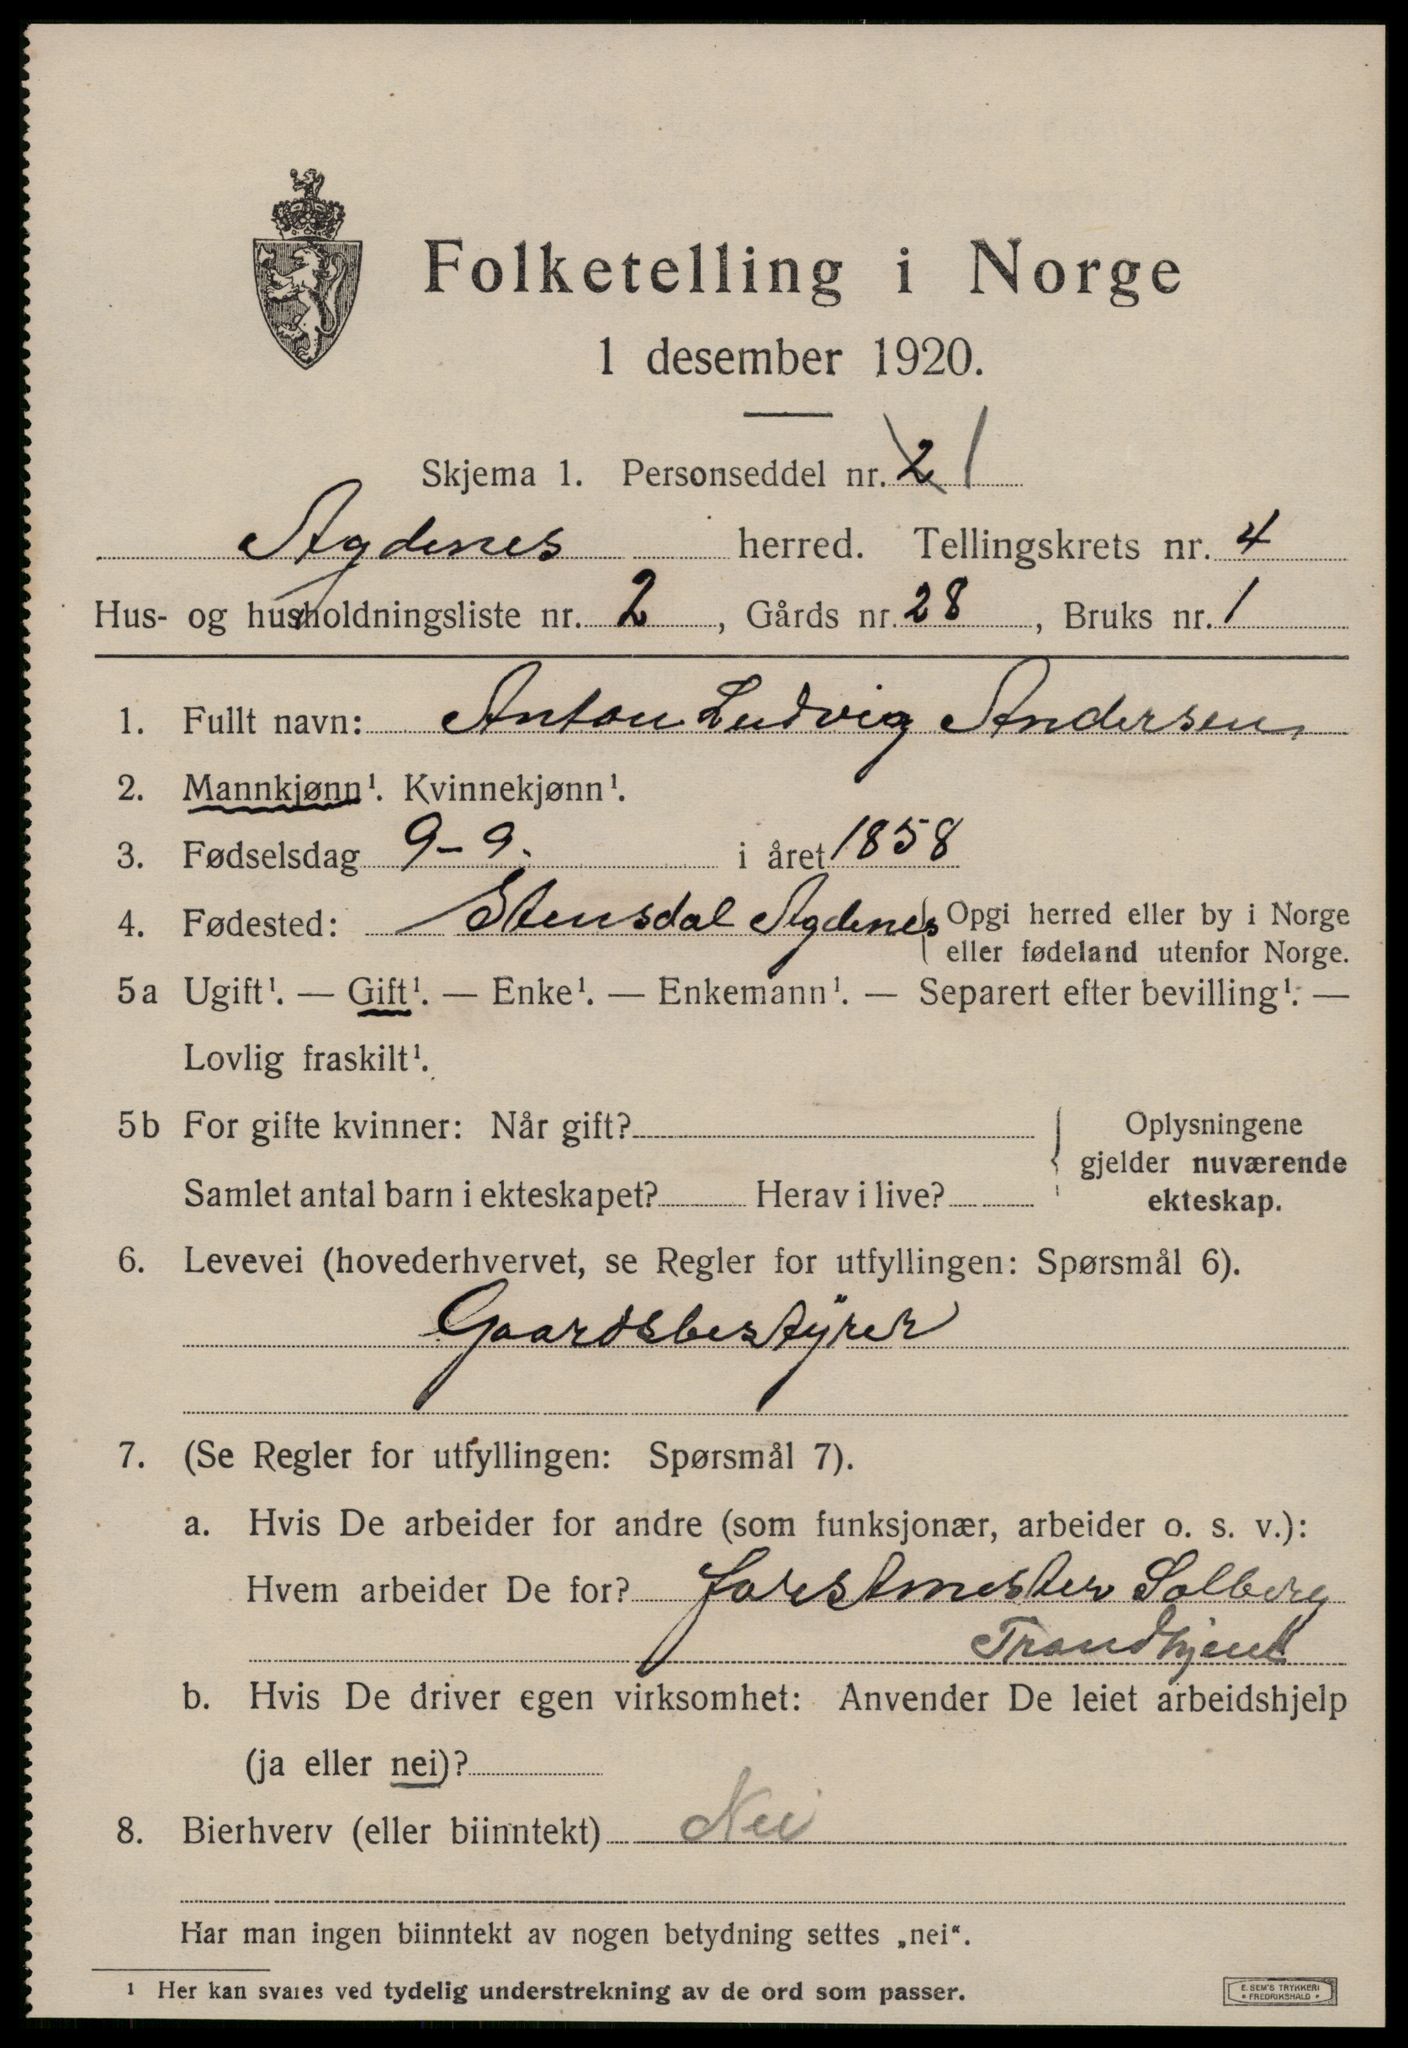 Folketelling i Norge
1 desember 1920.
Skjema 1. Personseddel nr. 2 1
Agdenes herred. Tellingskrets nr. 4
Hus- og husholdningsliste nr. 2, Gårds nr. 28, Bruks nr. 1
1. Fullt navn: Anton Ludvig Andersen
2. Mannkjønn¹. Kvinnekjønn¹.
3. Fødselsdag 9-9. i året 1858
4. Fødested: Stensdal Agdenes { Opgi herred eller by i Norge
eller fødeland utenfor Norge.
5a Ugift¹. — Gift¹. — Enke¹. — Enkemann¹. — Separert efter bevilling¹. —
Lovlig fraskilt¹.
5b For gifte kvinner: Når gift?
Samlet antal barn i ekteskapet? Herav i live?
Oplysningene
gjelder nuværende
ekteskap.
6. Levevei (hovederhvervet, se Regler for utfyllingen: Spørsmål 6).
Gaardsbestÿrer
7. (Se Regler for utfyllingen: Spørsmål 7).
a. Hvis De arbeider for andre (som funksjonær, arbeider o. s. v.):
Hvem arbeider De for? forstmester Solberg
Trondhjem
b. Hvis De driver egen virksomhet: Anvender De leiet arbeidshjelp
(ja eller nei)?
8. Bierhverv (eller biinntekt) Nei
Har man ingen biinntekt av nogen betydning settes „nei“.
¹ Her kan svares ved tydelig understrekning av de ord som passer.
E. SEM'S TRYKKERI
* FREDRIKSHALD *